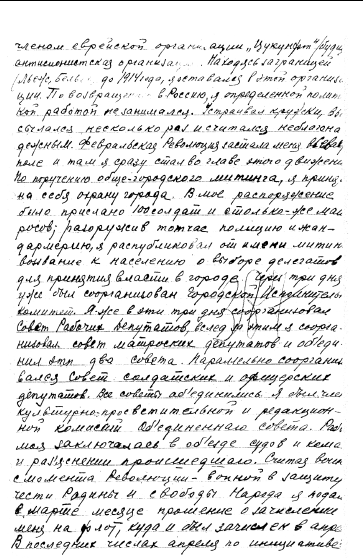 членом еврейской организации "Цукунфт" /Буду
антисионистская организация. Находясь заграницей
до 1914 года, я оставался в этой организа-
ции. По возвращении в Россию, я определенной полит
кой работой не занимался. Устраивал кружки, вы
сылался несколько раз и считался неблагона
дежным. Февральская Революция застала меня
поле и там я сразу стал во главе этого движения
По поручению обще-городского митинга, я принял
на себя охрану города. В мое распоряжение
было прислано 100 солдат и столько-же мат
росов; разоружив тотчас полицию и жан-
дармерию, я распубликовал от имени митин
воззвание к населению о выборе делегатов
для принятия власти в городе, через три дня
уже был соорганизован Городской Исполнительн
комитет. Я же в эти три дня соорганизовал
Совет Рабочих депутатов, вслед за этим я соорга-
низовал совет матросских депутатов и об'еди-
нил эти два совета. Параллельно соорганизо
вался Совет солдатских и офицерских
депутатов. Все советы об'единились. Я был член
культурно-просветительной и редакцион-
ной комиссии об'единенного совета. Рабо
моя заключалась в об'езде судов и кома
и раз'яснении происшедшего. Считая войн
с момента Революции - войной в защиту
чести Родины и свободы Народа я подал
в марте месяце прошение о зачислении
меня на флот, куда и был зачислен в апре
В последних числах апреля по инициативе